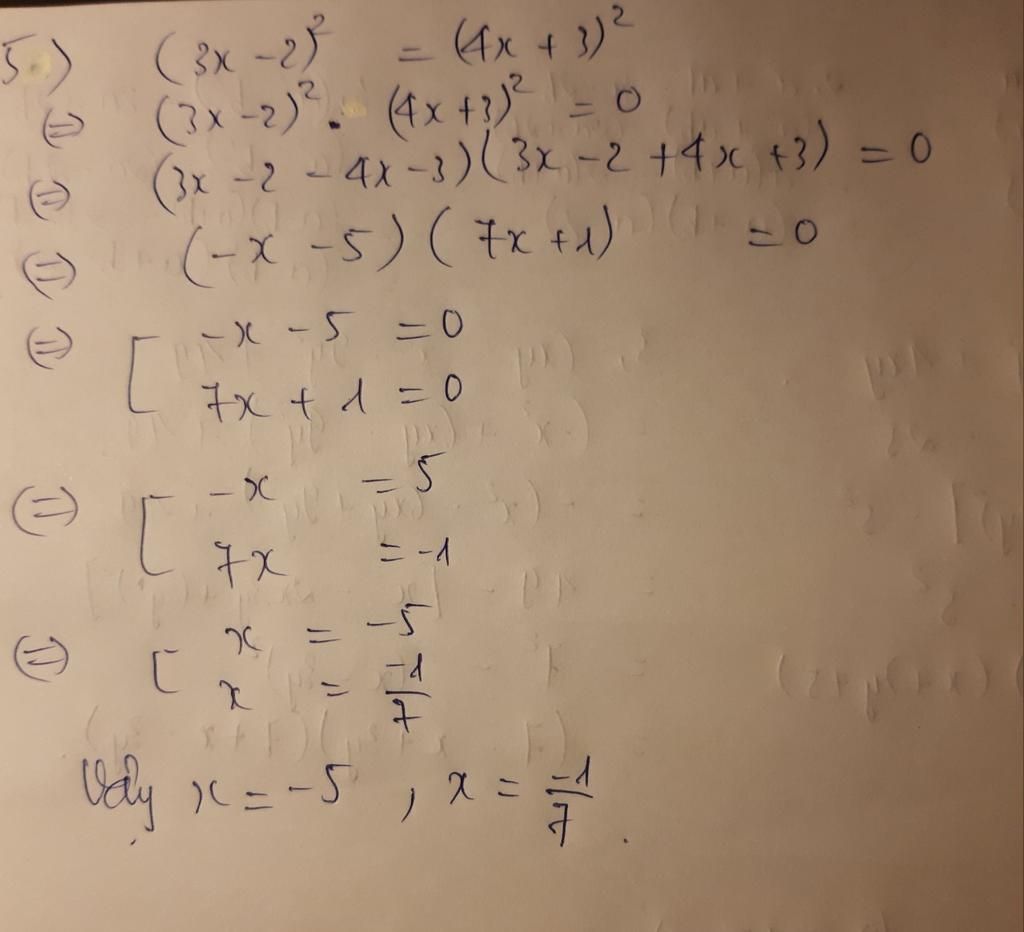 5) (3x - 2)² = (4x + 3)²
⇔ (3x - 2)² - (4x + 3)² = 0
⇔ (3x - 2 - 4x - 3)(3x - 2 + 4x + 3) = 0
⇔ (-x - 5)(7x + 1) = 0
⇔ [ -x - 5 = 0
7x + 1 = 0
⇔ [ -x = 5
7x = -1
⇔ [ x = -5
x = -1/7
Vậy x = -5, x = -1/7.